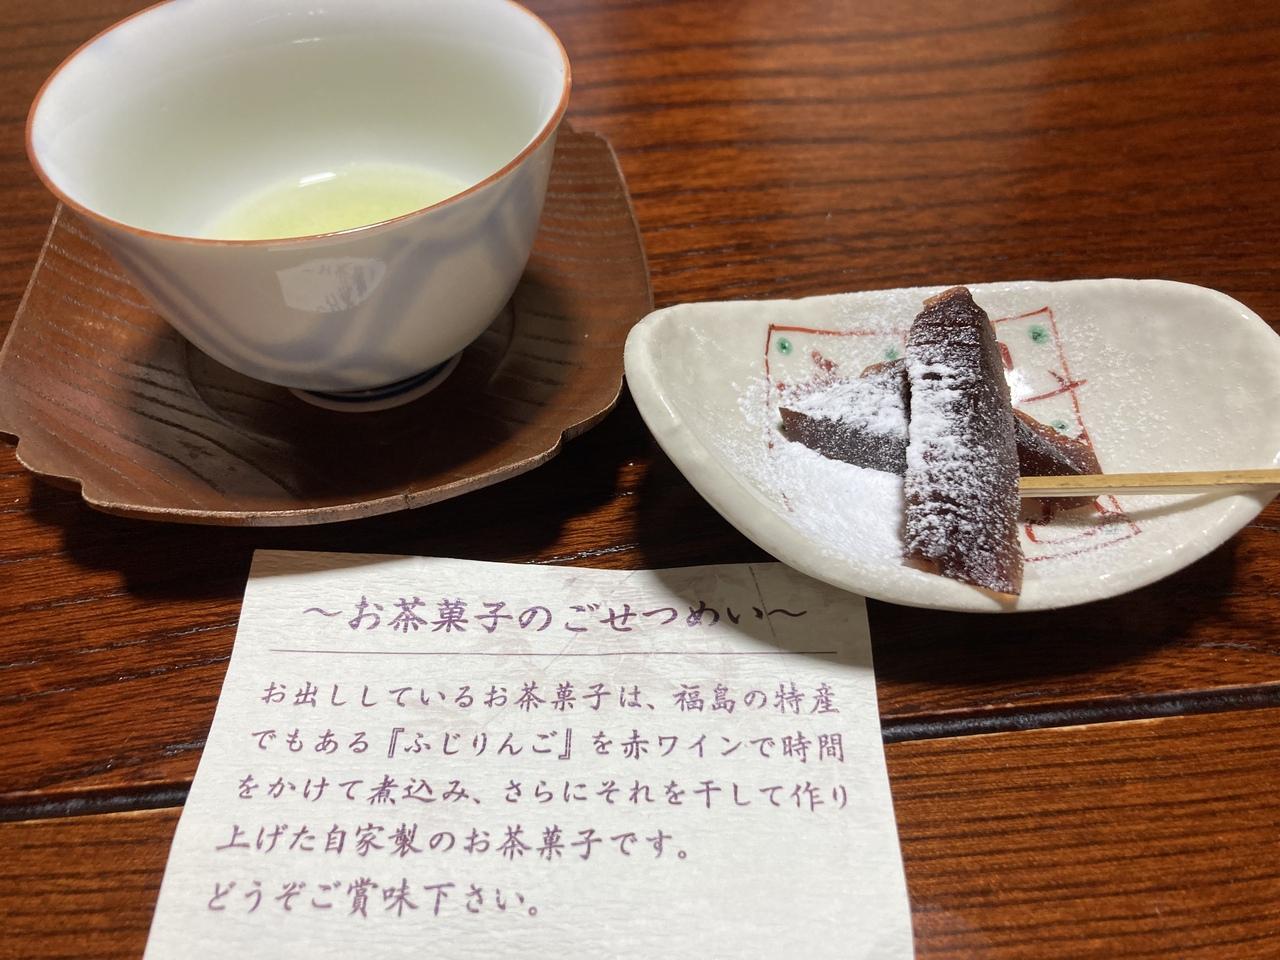 ～お茶菓子のごせつめい～
お出ししているお茶菓子は、福島の特産
でもある『ふじりんご』を赤ワインで時間
をかけて煮込み、さらにそれを干して作り
上げた自家製のお茶菓子です。
どうぞご賞味下さい。